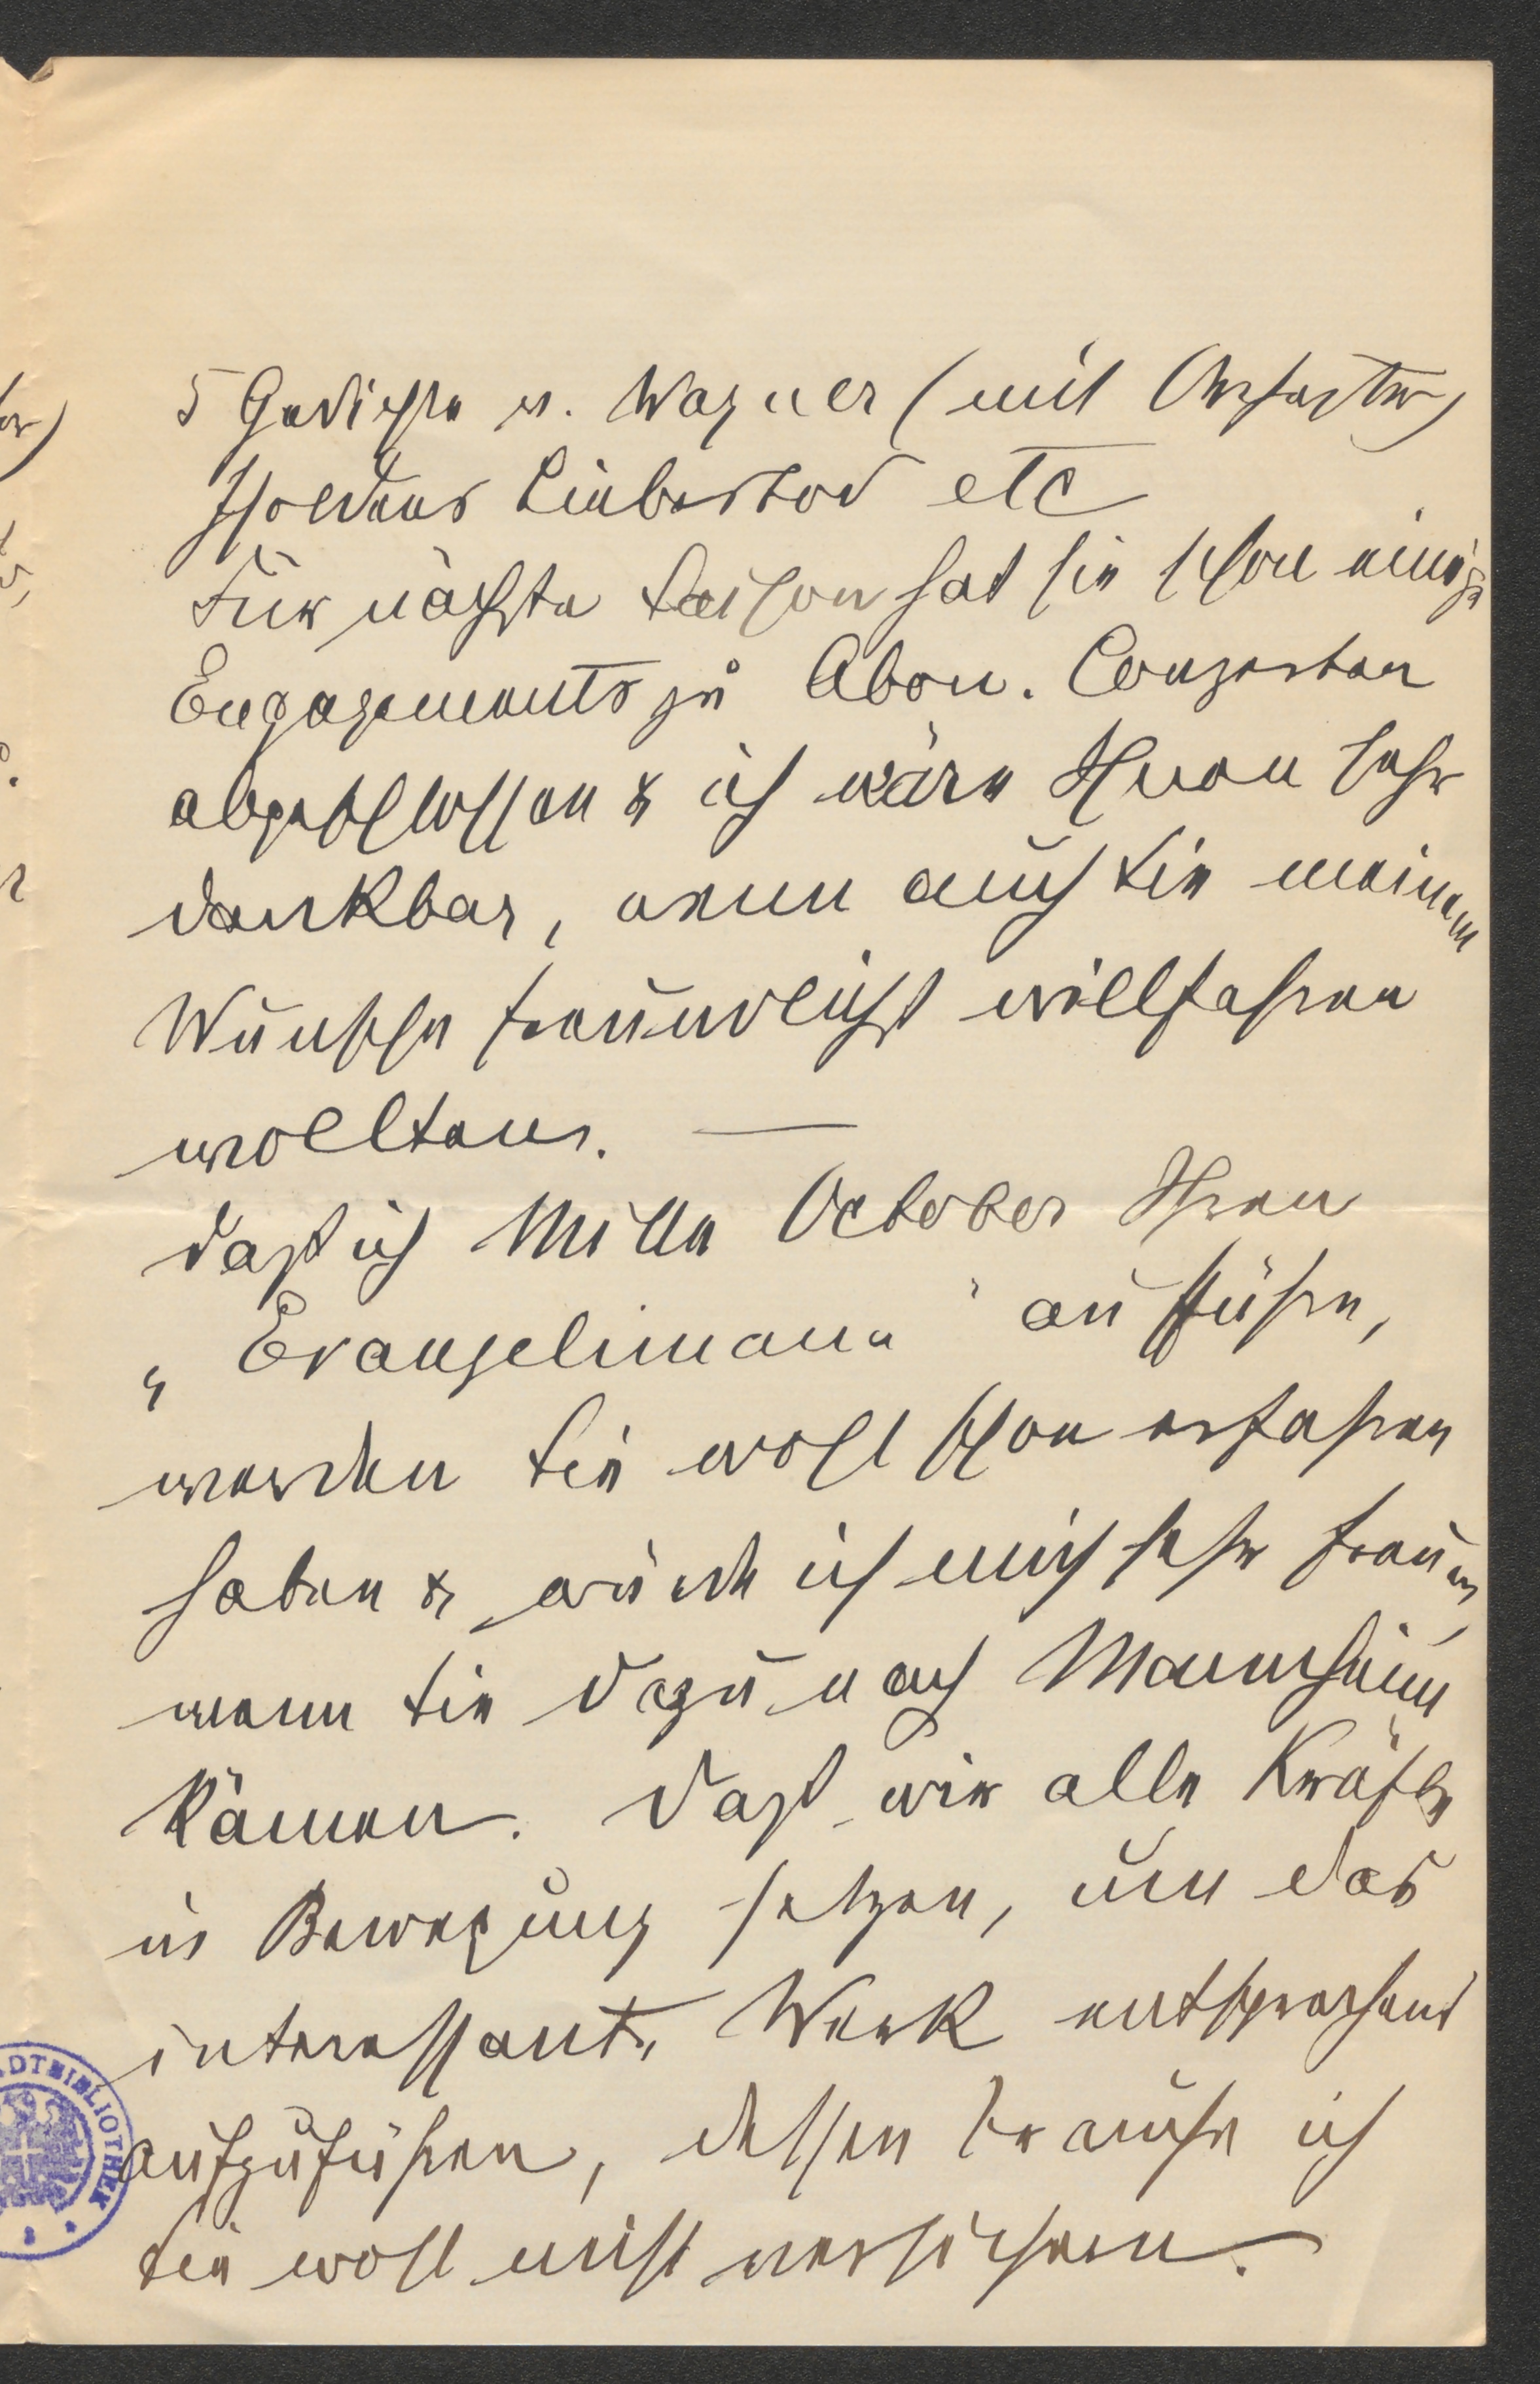 5 Gedichte v. Wagner (mit Orchester)
Isoldens Liebestod etc
Für nächste Saison hat sie schon einige
Engagements zu Abon. Conzerten
abgeschlossen & ich wäre Ihnen sehr
dankbar, wenn auch Sie meinem
Wunsche freundlichst willfahren
wollten. —
Daß ich Mitte October Ihren
„Evangelimann" aufführe,
werden Sie wohl schon erfahren
haben & würde ich mich sehr freuen,
wenn Sie dazu nach Mannheim
kämen. Daß wir alle Kräfte
in Bewegung setzen, um das
interessante Werk entsprechend
aufzuführen, dessen brauche ich
Sie wohl nicht versichern.
DTBIBLIOTHEK